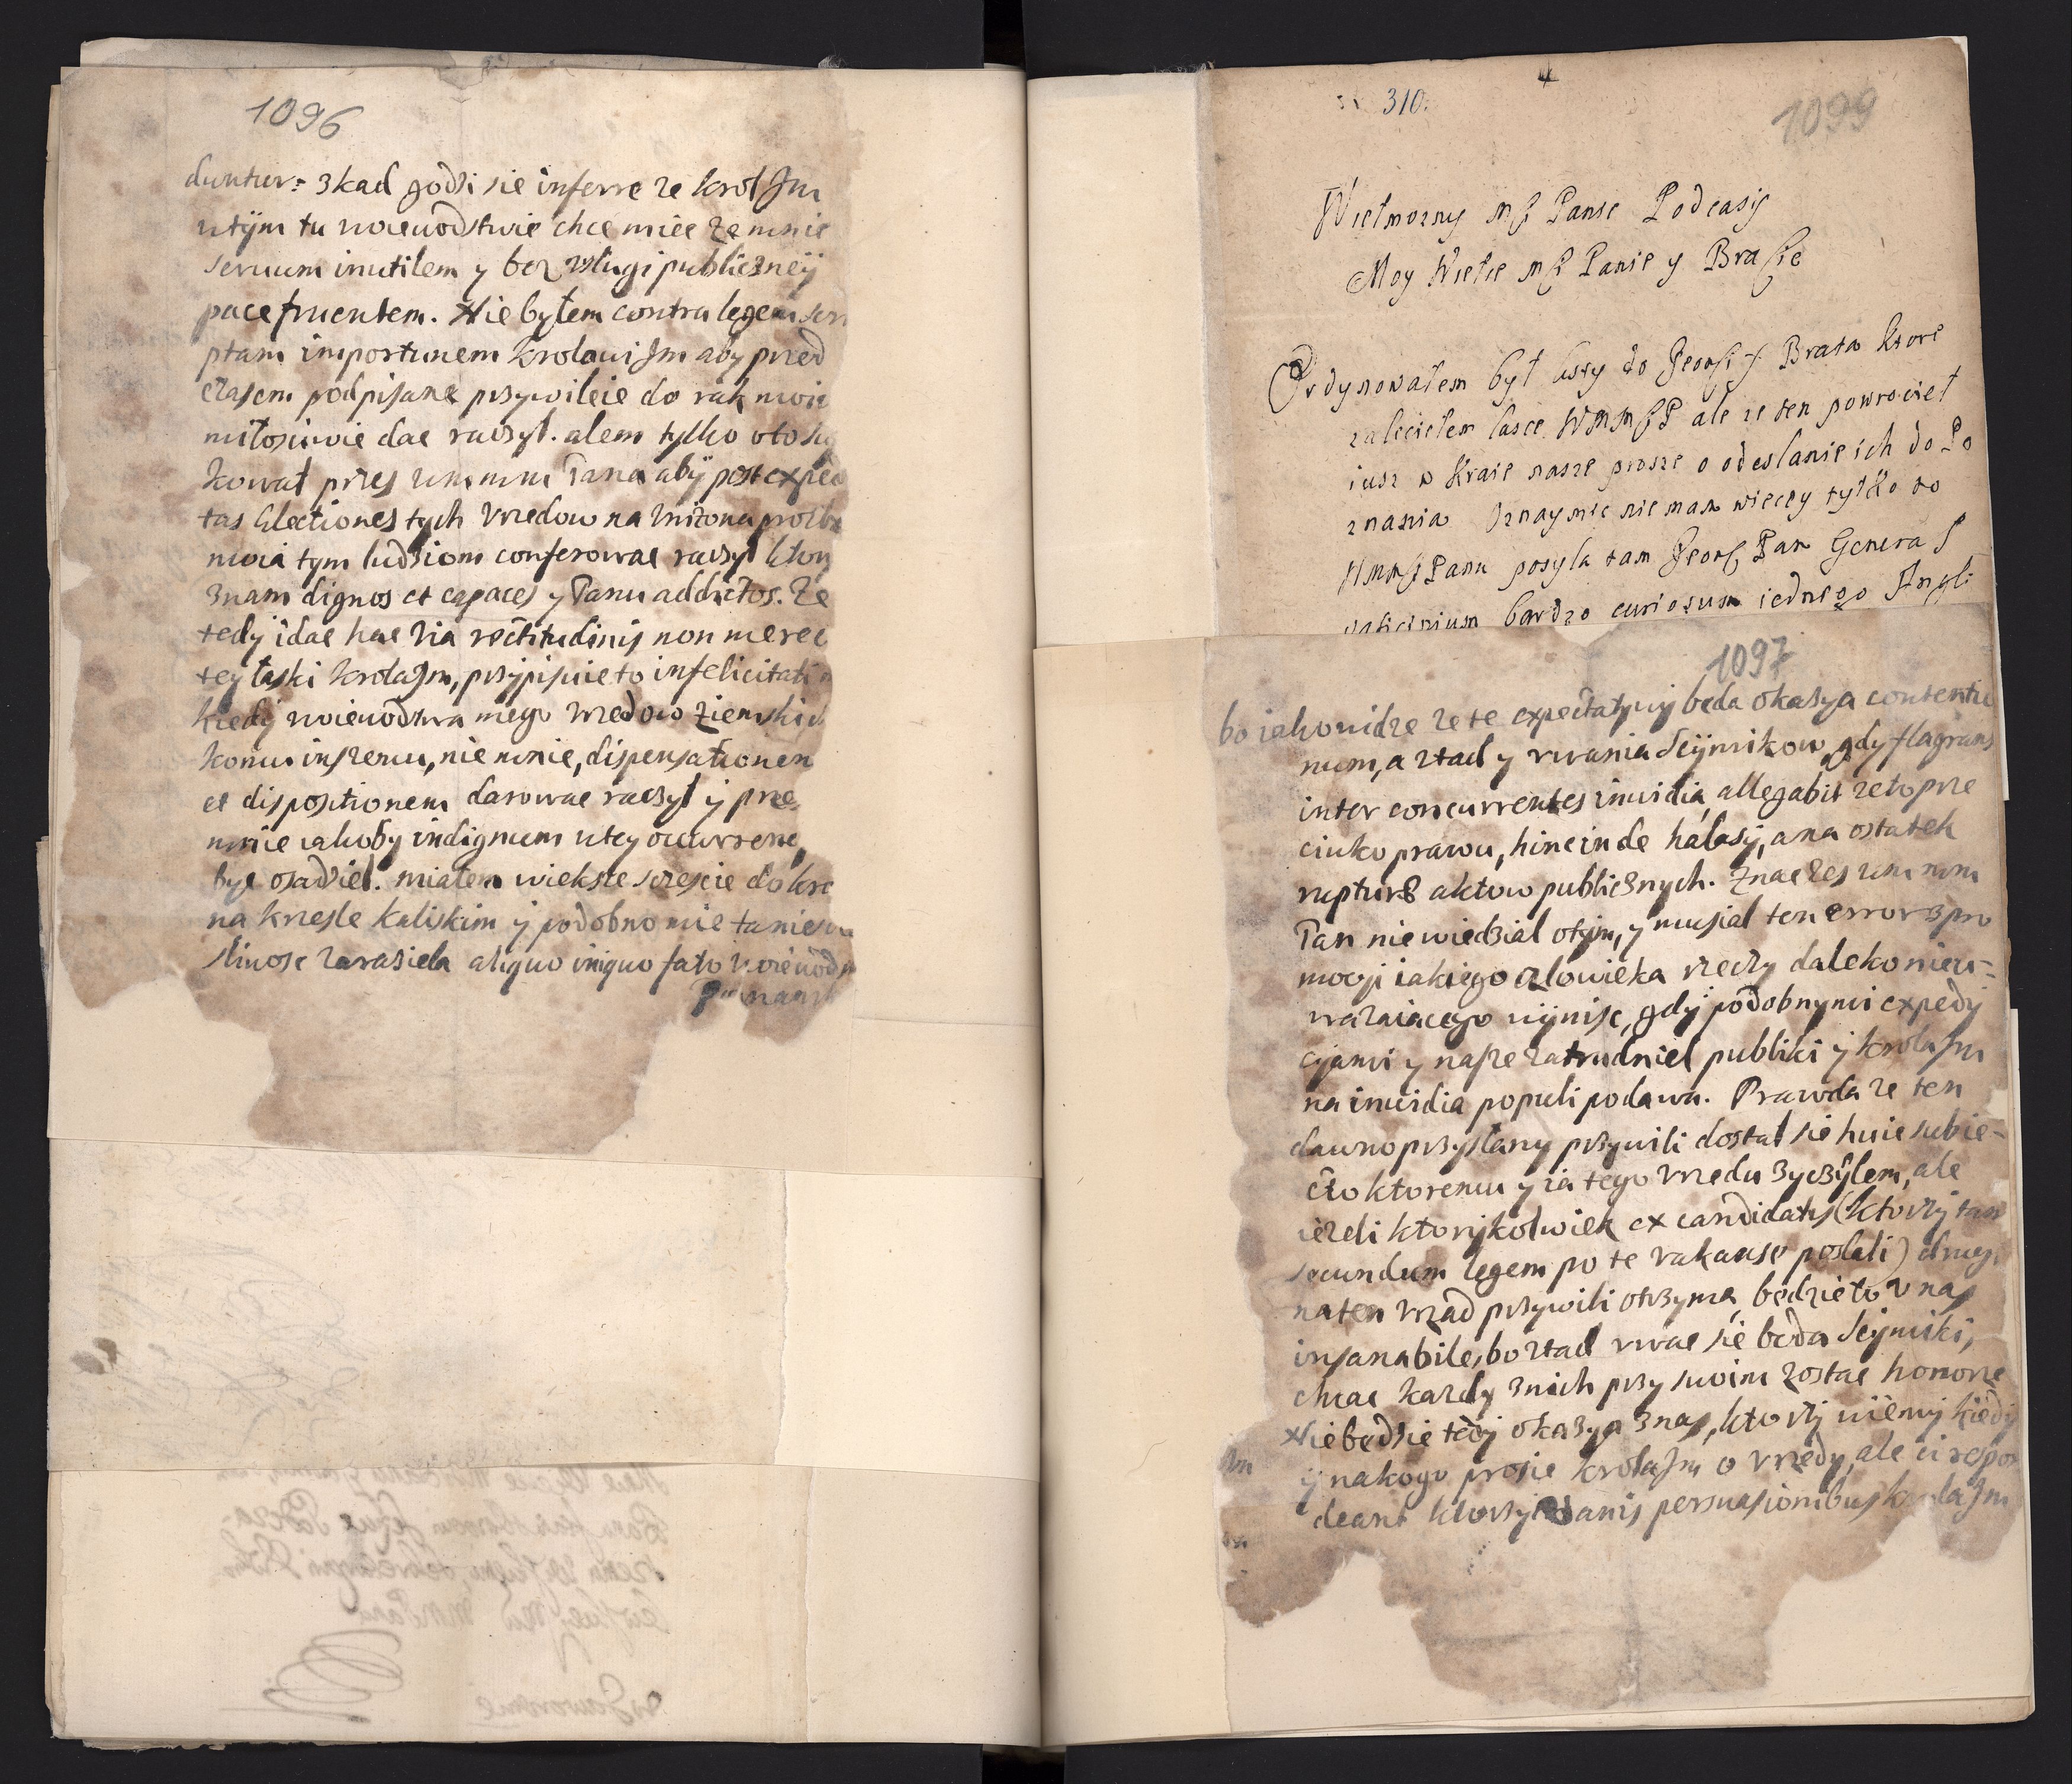 1096
duntur: zkad godzi sie inferre ze krol Jm
wtÿm tu woiewodstwie chce miec ze mnie
seruum inutilem y bez vsługi publicznëÿ
pace fruentem. Nie byłem contra legem scri
ptam importunem krolowi Jm aby przed
czasem podpisane przywileie do rąk moich
miłosciwie dac raczył. alem tylko oto
kował przes wm mm Pana abÿ post expec
tas Electiones tych vrzedow na vniżona prozbe
moia tym ludziom conferowac raczył ktory
znam dignos et capaces y Panu addictos. Ze
tedy idac hac via rectitudinis non merec
tey łaski krola Jm, przÿpisuie to infelicitati
kiedÿ woiewodztwa mego vrzedow ziemskich
komu inszemu, nie mnie, dispensationem
et dispositionem darowac raczył ÿ prze
mnie iakoby indignum w tey ocurrenc,
byc osadziel. miałem wieksze sczescie
na krzesle kaliskim ÿ podobno mie ta
sliwosc zaraziela aliquo iniquo fato
310.
1099
Wielmozny MP Panie Podczaszÿ
Moy Wielce MP Panie y Bracie
Ordynowałem był listy do Jeomsci X. Brata ktore
zaleciełem łasce WMMPP ale ze ten powrociel
iusz w Kraie nasze prosze o odesłanie ich do Po
znania Jznaymic nie mam wiecey tylko to
WMMP Panu posyła tam Jeoms Pan General
vaticinium bardzo curiosum iednego Angli
1097
bo iako widze ze te expectatywÿ beda okazya contentio
num, a ztad y rwania Seÿmikow, gdy flagrans
inter concurrentes inuidia, allegabit ze to prze
ciwko prawu, hinc inde háłasÿ, a na ostatek
rupture aktow publicznych. Znac zes wm mm
Pan nie wiedzial otym, y musial ten error z pro
mocÿi iakiego człowieka rzeczy daleko nieu=
wazaiacego wÿnisc, gdÿ podobnymi expedÿ
cÿami y nasze zatrudniel publiki ÿ krola Jm
na inuidia populi podawa. Prawda ze ten
dawno przysłany przÿwili dostał sie huic subie-
cto ktoremu y ia tego vrzedu zyczÿlem, ale
iezeli ktorÿkolwiek ex candidatis (ktorzÿ tam
secundum legem po te vakanse posłali) drugi
na ten vrzad przywili otrzyma, bedzie to v nas
insanabile, bo ztad rwac sie beda Seÿmiki,
chcac kazdy z nich przy swoim zostac honorze
Nie bedzie tedÿ okazya z nas, ktorzÿ wiemÿ kiedÿ
ÿ nakogo prosic krola Jm o vrzedy, ale ci respon
deant ktorzÿ vanis persuasionibus krola Jm